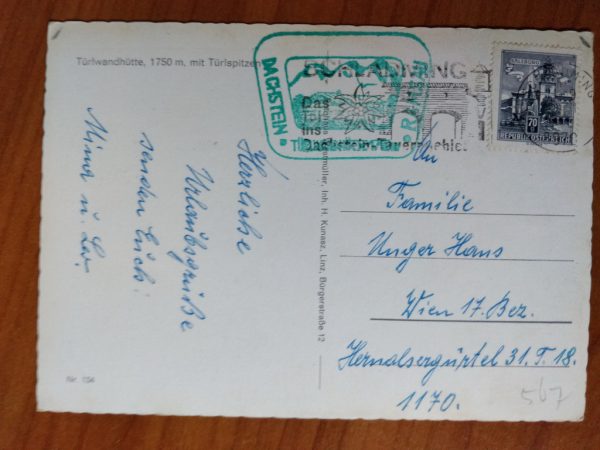 Türlwandhütte, 1750 m, mit Türlspitzen
Herzliche
Urlaubsgrüße
senden Euch:
Mina u.
Nr. 154
Inh. H. Kunasz, Linz, Bürgerstraße 12
DACHSTEIN
SCHLADMING
Das
Tor
ins
Dachstein-Tauerngebiet
SALZBURG
70
REPUBLIK ÖSTERREICH
An
Familie
Unger Hans
Wien 17. Bez.
Hernalsergürtel 31. T. 18.
1170.
567